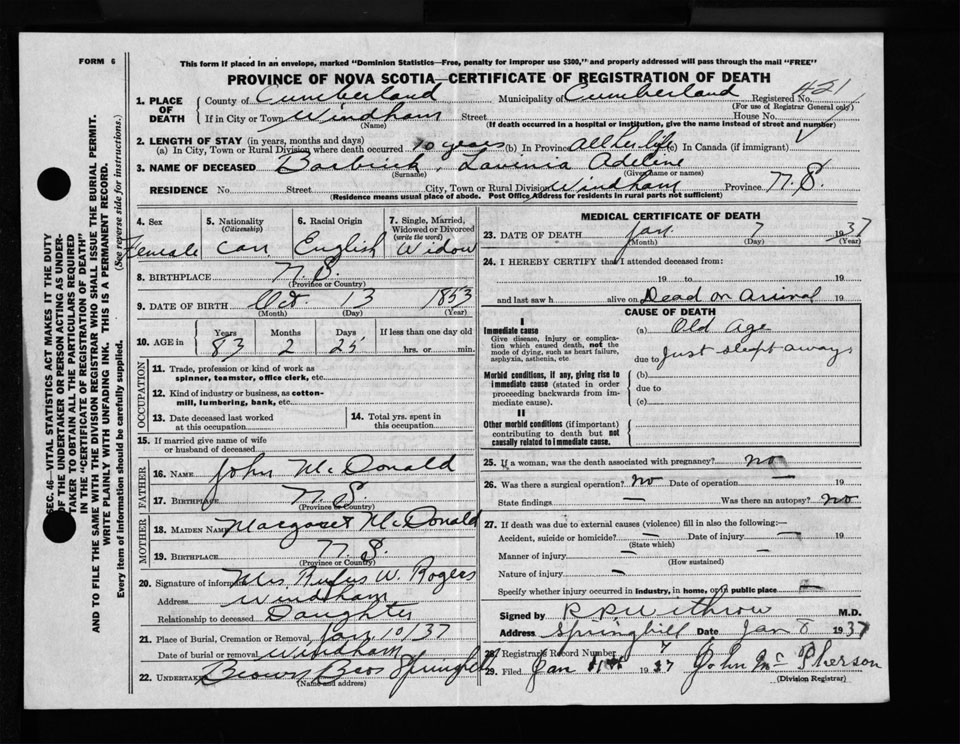 FORM 6
This form if placed in an envelope, marked "Dominion Statistics—Free, penalty for improper use $300," and properly addressed will pass through the mail "FREE"
PROVINCE OF NOVA SCOTIA—CERTIFICATE OF REGISTRATION OF DEATH
1. PLACE OF DEATH
County of Cumberland Municipality of Cumberland Registered No. #21
(For use of Registrar General only)
If in City or Town Windham Street House No.
(Name) (If death occurred in a hospital or institution, give the name instead of street and number)
2. LENGTH OF STAY (in years, months and days)
(a) In City, Town or Rural Division where death occurred 10 years (b) In Province all her life (c) In Canada (if immigrant)
3. NAME OF DECEASED Barbrick, Lavinia Adeline
(Surname) (Given name or names)
RESIDENCE No. Street City, Town or Rural Division Windham Province N.S.
(Residence means usual place of abode. Post Office Address for residents in rural parts not sufficient)
4. Sex Female
5. Nationality (Citizenship) Can
6. Racial Origin English
7. Single, Married, Widowed or Divorced (write the word) Widow
8. BIRTHPLACE N.S.
(Province or Country)
9. DATE OF BIRTH Oct 13 1853
(Month) (Day) (Year)
10. AGE in Years 83 Months 2 Days 25 If less than one day old
hrs. or min.
OCCUPATION
11. Trade, profession or kind of work as spinner, teamster, office clerk, etc.
12. Kind of industry or business, as cotton-mill, lumbering, bank, etc.
13. Date deceased last worked at this occupation
14. Total yrs. spent in this occupation
15. If married give name of wife or husband of deceased
FATHER
16. NAME John McDonald
17. BIRTHPLACE N.S.
(Province or Country)
MOTHER
18. MAIDEN NAME Margaret McDonald
19. BIRTHPLACE N.S.
(Province or Country)
20. Signature of informant Mrs Rufus W. Rogers
Address Windham
Relationship to deceased Daughter
21. Place of Burial, Cremation or Removal Jan 10/37
Date of burial or removal Windham
22. UNDERTAKER Brown Bros Springhill
(Name and address)
MEDICAL CERTIFICATE OF DEATH
23. DATE OF DEATH Jan. 7 1937
(Month) (Day) (Year)
24. I HEREBY CERTIFY that I attended deceased from:
19 to 19
and last saw h alive on Dead on Arrival 19
CAUSE OF DEATH
I
Immediate cause
Give disease, injury or complication which caused death, not the mode of dying, such as heart failure, asphyxia, asthenia, etc
(a) Old Age
due to Just slept away
Morbid conditions, if any, giving rise to immediate cause (stated in order proceeding backwards from immediate cause).
(b)
due to
(c)
II
Other morbid conditions (if important) contributing to death but not causally related to immediate cause.
25. If a woman, was the death associated with pregnancy? no
26. Was there a surgical operation? no Date of operation — 19
State findings — Was there an autopsy? no
27. If death was due to external causes (violence) fill in also the following:—
Accident, suicide or homicide? — Date of injury — 19
(State which)
Manner of injury —
(How sustained)
Nature of injury —
Specify whether injury occurred in industry, in home, or in public place —
Signed by R P Withrow M.D.
Address Springhill Date Jan 8 1937
28. Registrar's Record Number 7
29. Filed Jan 1937 John McPherson
(Division Registrar)
SEC. 46—VITAL STATISTICS ACT MAKES IT THE DUTY
OF THE UNDERTAKER OR PERSON ACTING AS UNDER-
TAKER TO OBTAIN ALL THE PARTICULARS REQUIRED
IN THE "CERTIFICATE OF REGISTRATION OF DEATH"
AND TO FILE THE SAME WITH THE DIVISION REGISTRAR WHO SHALL ISSUE THE BURIAL PERMIT.
WRITE PLAINLY WITH UNFADING INK. THIS IS A PERMANENT RECORD.
Every item of information should be carefully supplied. (See reverse side for instructions.)